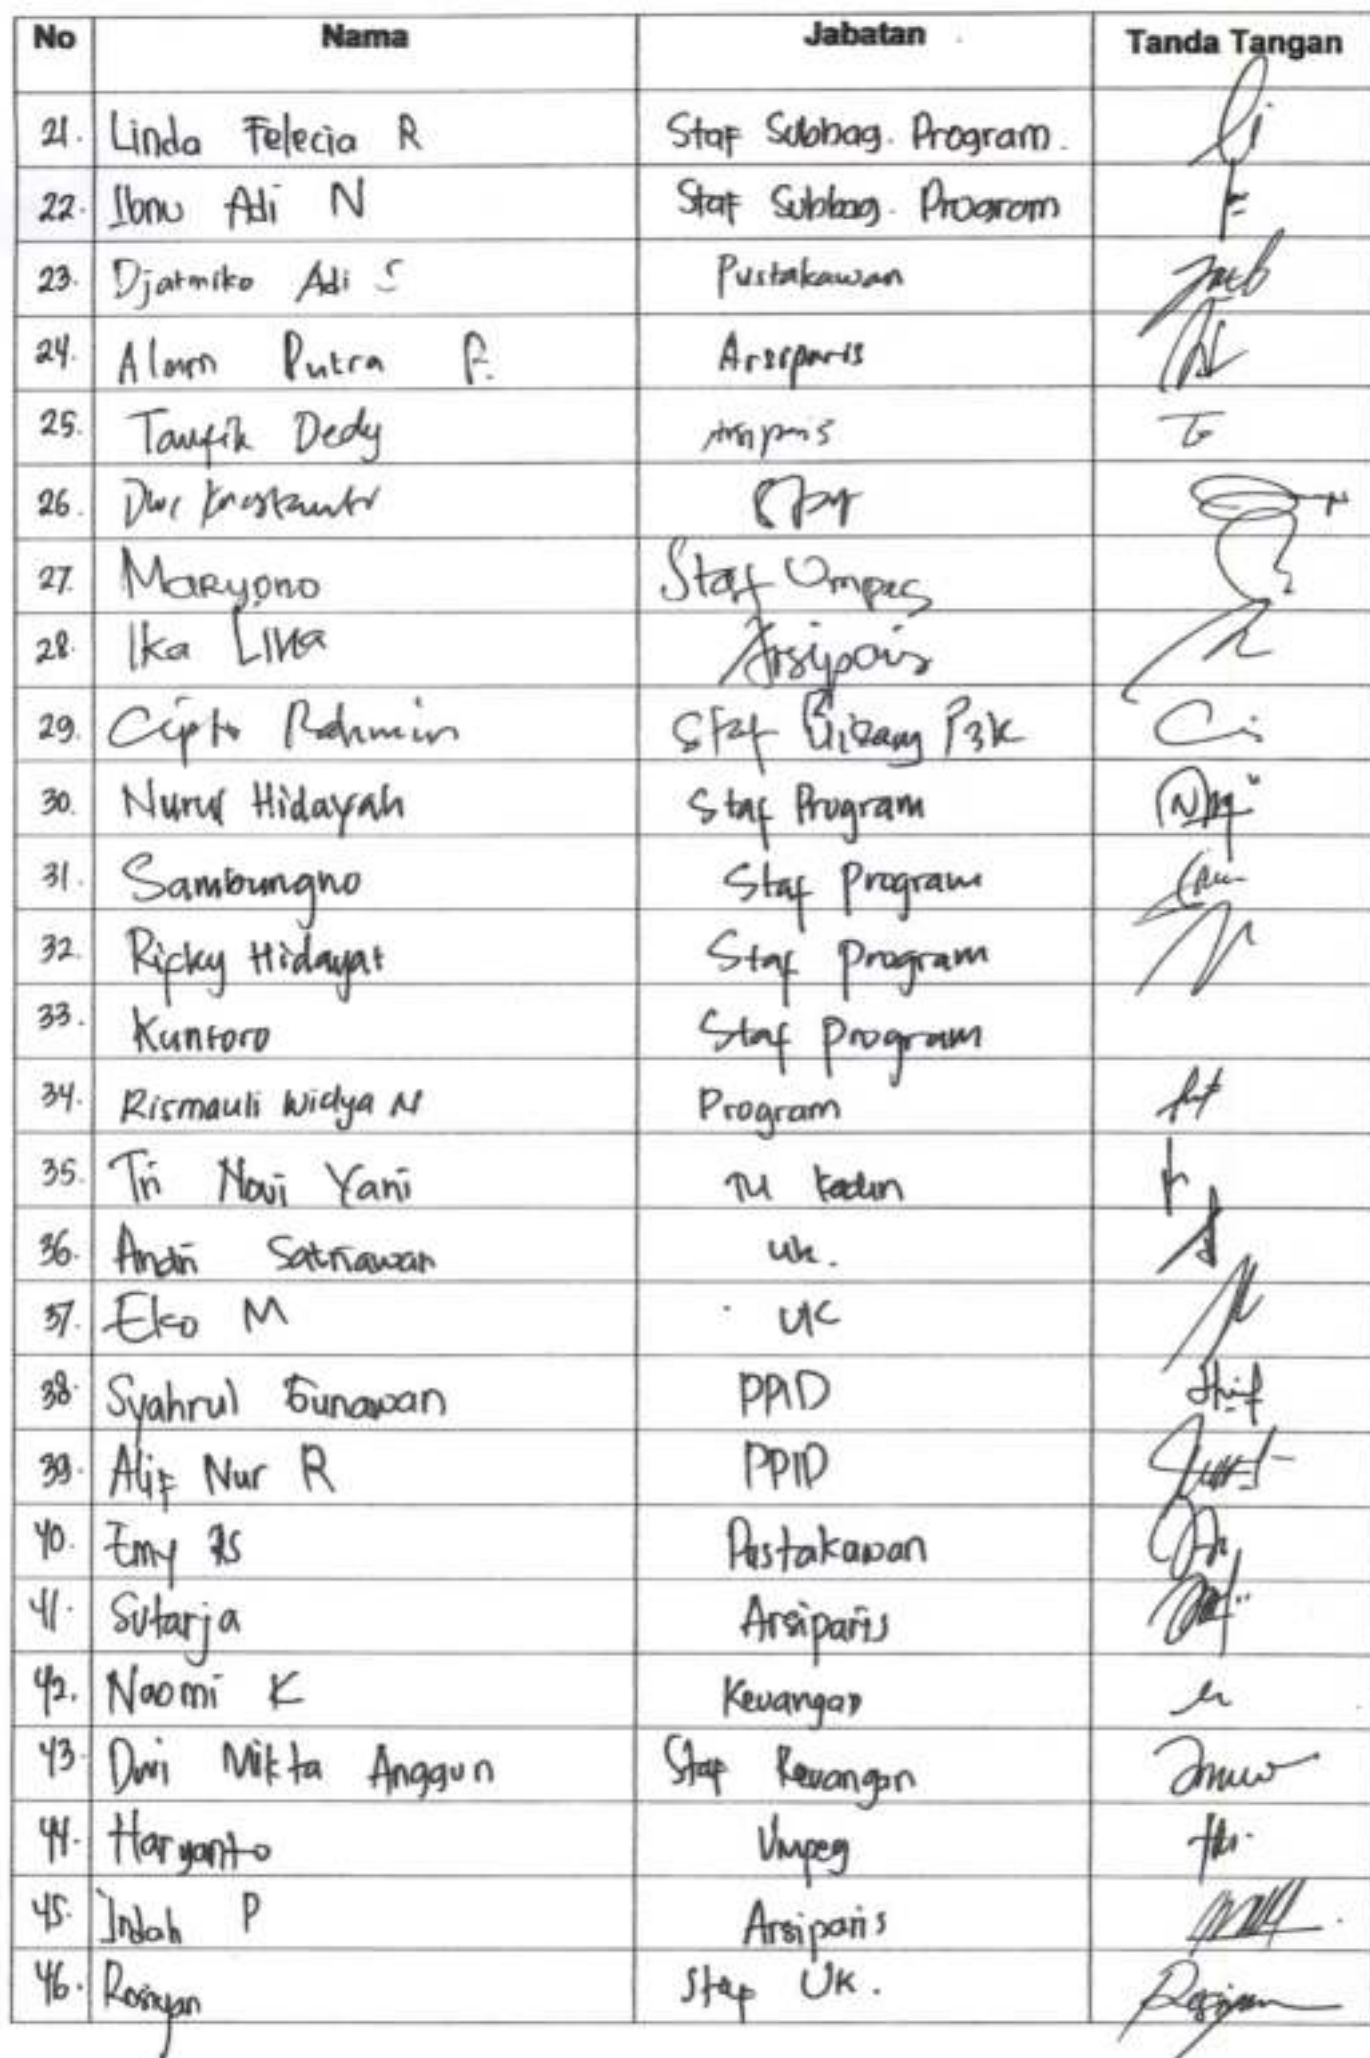 No Nama Jabatan Tanda Tangan
21. Linda Felecia R Staf Subbag. Program.
22. Ibnu Adi N Staf Subbag. Program
23. Djatmiko Adi S Pustakawan
24. Alam Putra P. Arsiparis
25. Taufik Dedy Arsiparis
26. Dwi
27. Maryono Staf Umpeg
28. Ika Lina Arsiparis
29. Cipto Rohmin Staf Bidang P3K
30. Nurul Hidayah Staf Program
31. Sambungno Staf Program
32. Rifky Hidayat Staf Program
33. Kuntoro Staf Program
34. Rismauli Widya N Program
35. Tri Novi Yani TU Kadin
36. Andri Satriawan UK.
37. Eko M UK
38. Syahrul Gunawan PPID
39. Alif Nur R PPID
40. Emy RS Pustakawan
41. Sutarja Arsiparis
42. Naomi K Keuangan
43. Dwi Mikta Anggun Staf Keuangan
44. Haryanto Umpeg
45. Indah P Arsiparis
46. Rosiyan Staf UK.